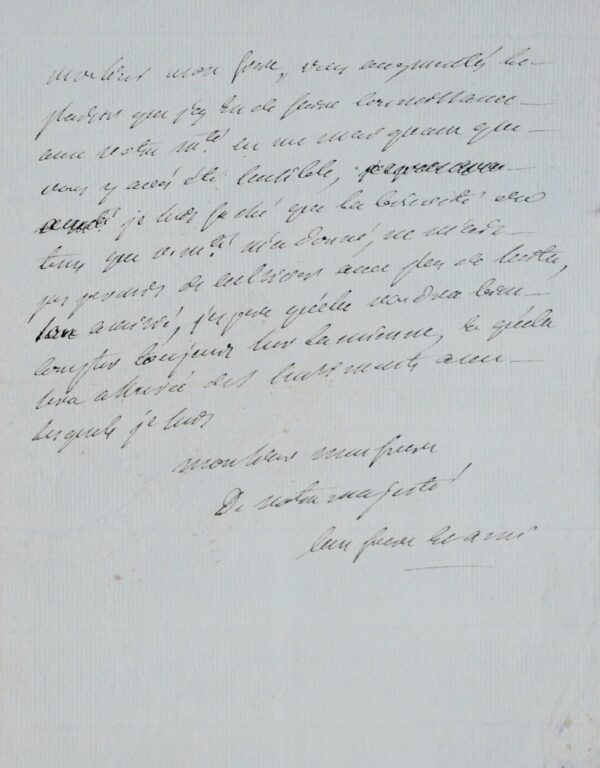 monsieur mon frere, vous augmentés le
plaisir que j'ay eu de faire connoissance
avec votre M.té en me marquant que
vous y avés été sensible,
je suis faché que la brieveté du
tems que v. m.té m'a donné, ne m'ait
pas permis de cultiver avec plus de
amitié, j'espere qu'elle voudra bien
compter toujours sur la mienne, et qu'elle
sera des sentiments avec
lesquels je suis
monsieur mon frere
De votre majesté
bon frere et ami